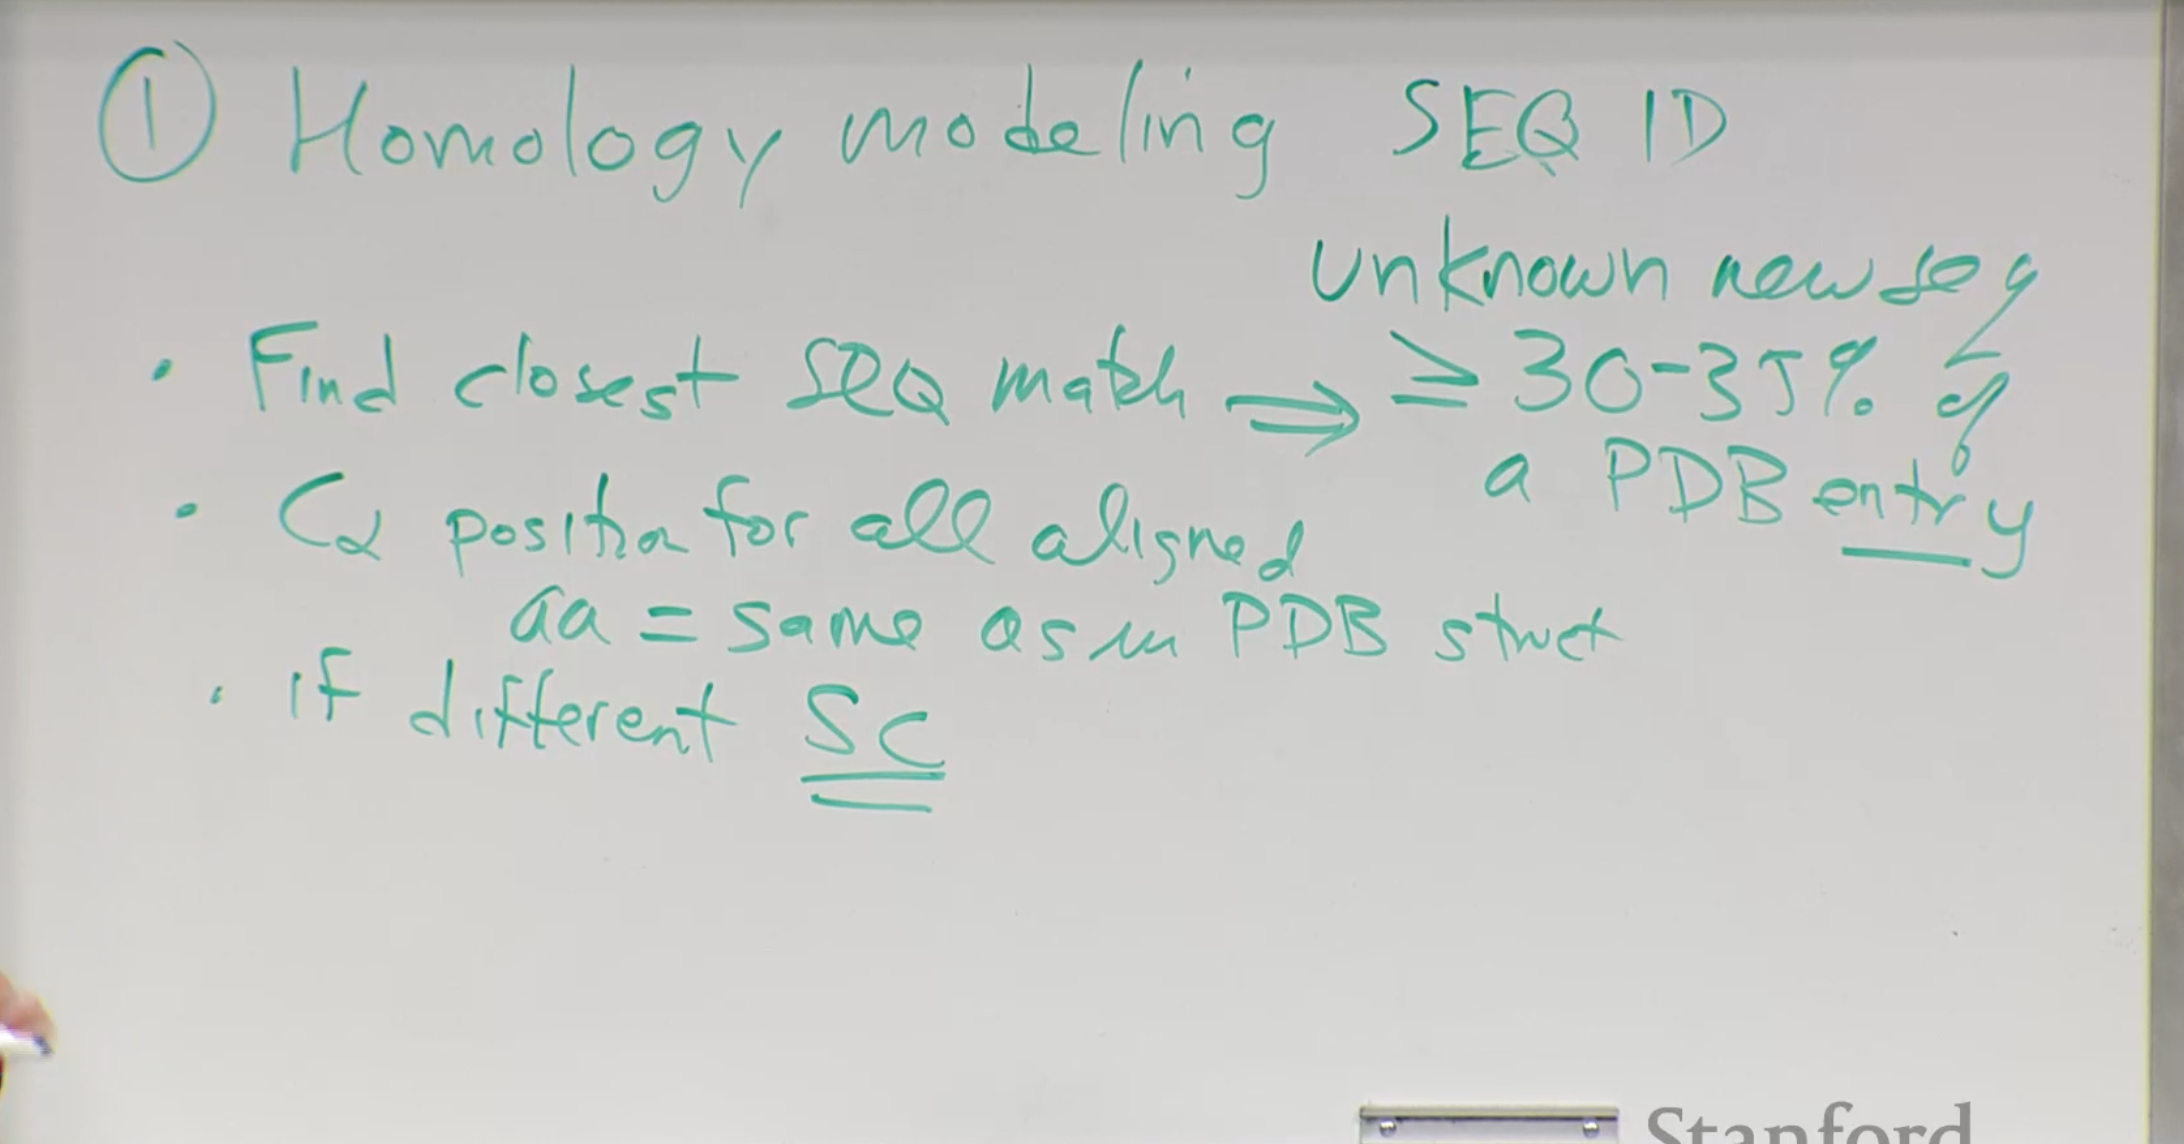 ① Homology modeling SEQ ID
unknown new seq
• Find closest SEQ match ⇒ ≥ 30-35% of
a PDB entry
• Cα position for all aligned
aa = same as in PDB struct
• if different SC
Stanford